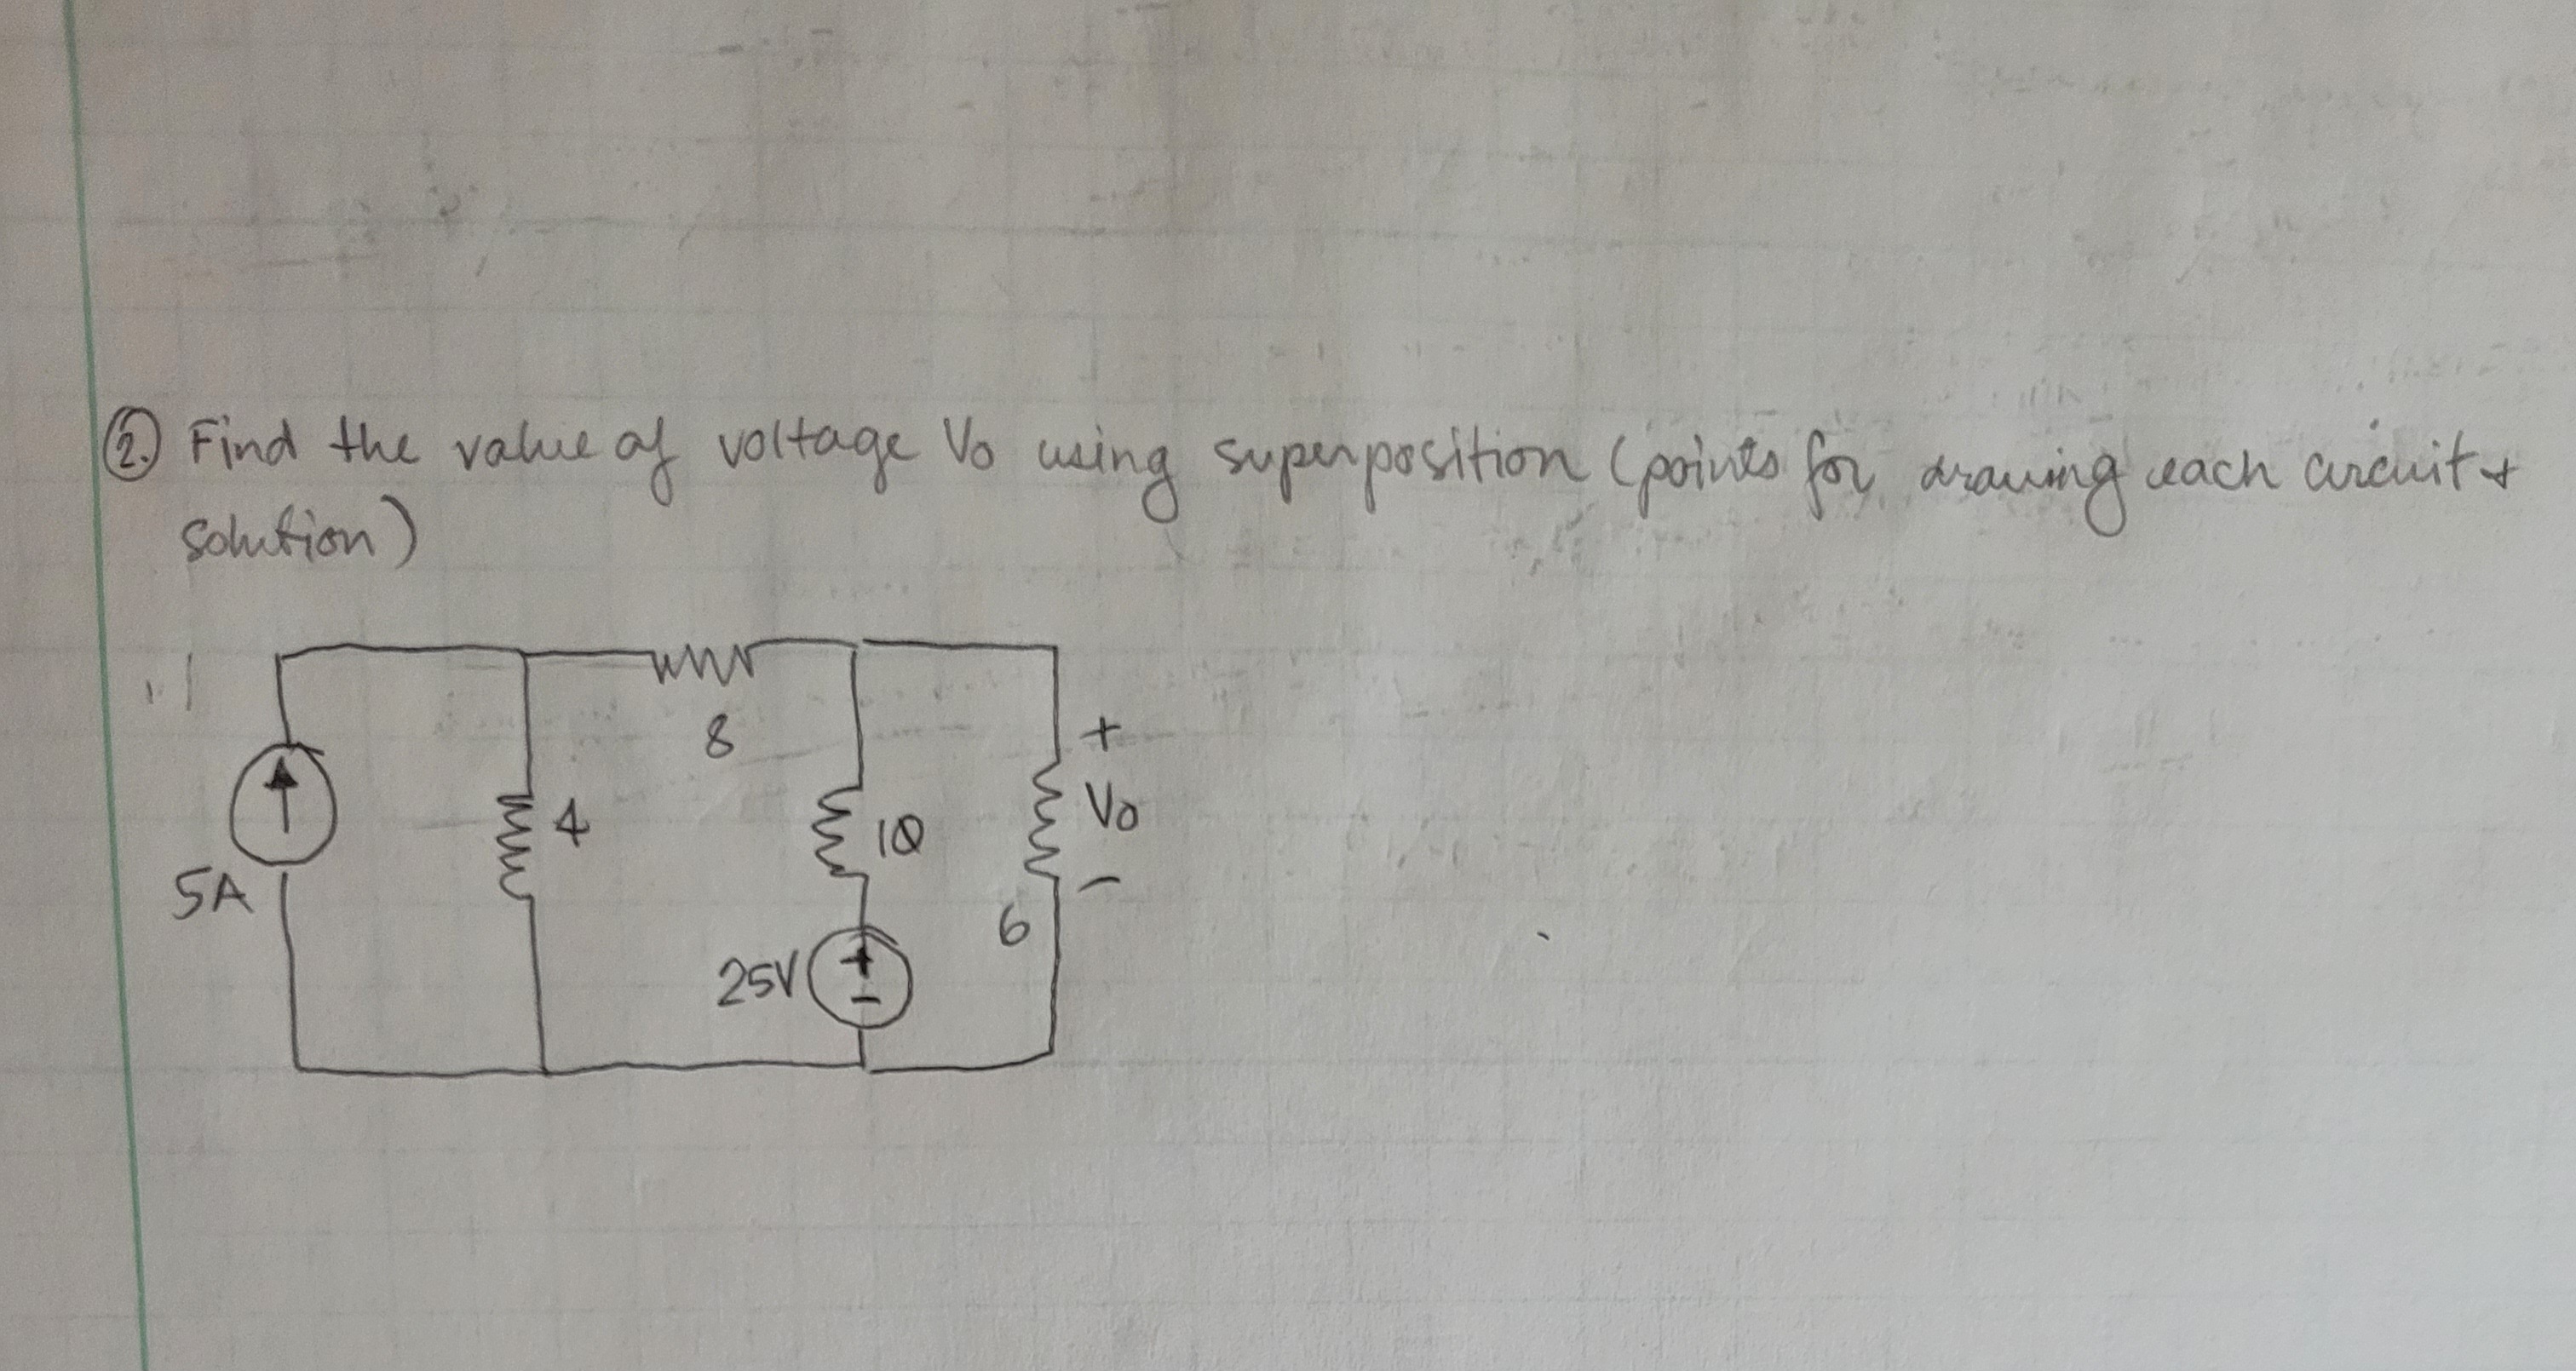 2. Find the value of voltage Vo using superposition (points for drawing each circuit +
solution)
8
+
4
10
Vo
5A
-
6
25V
+
-